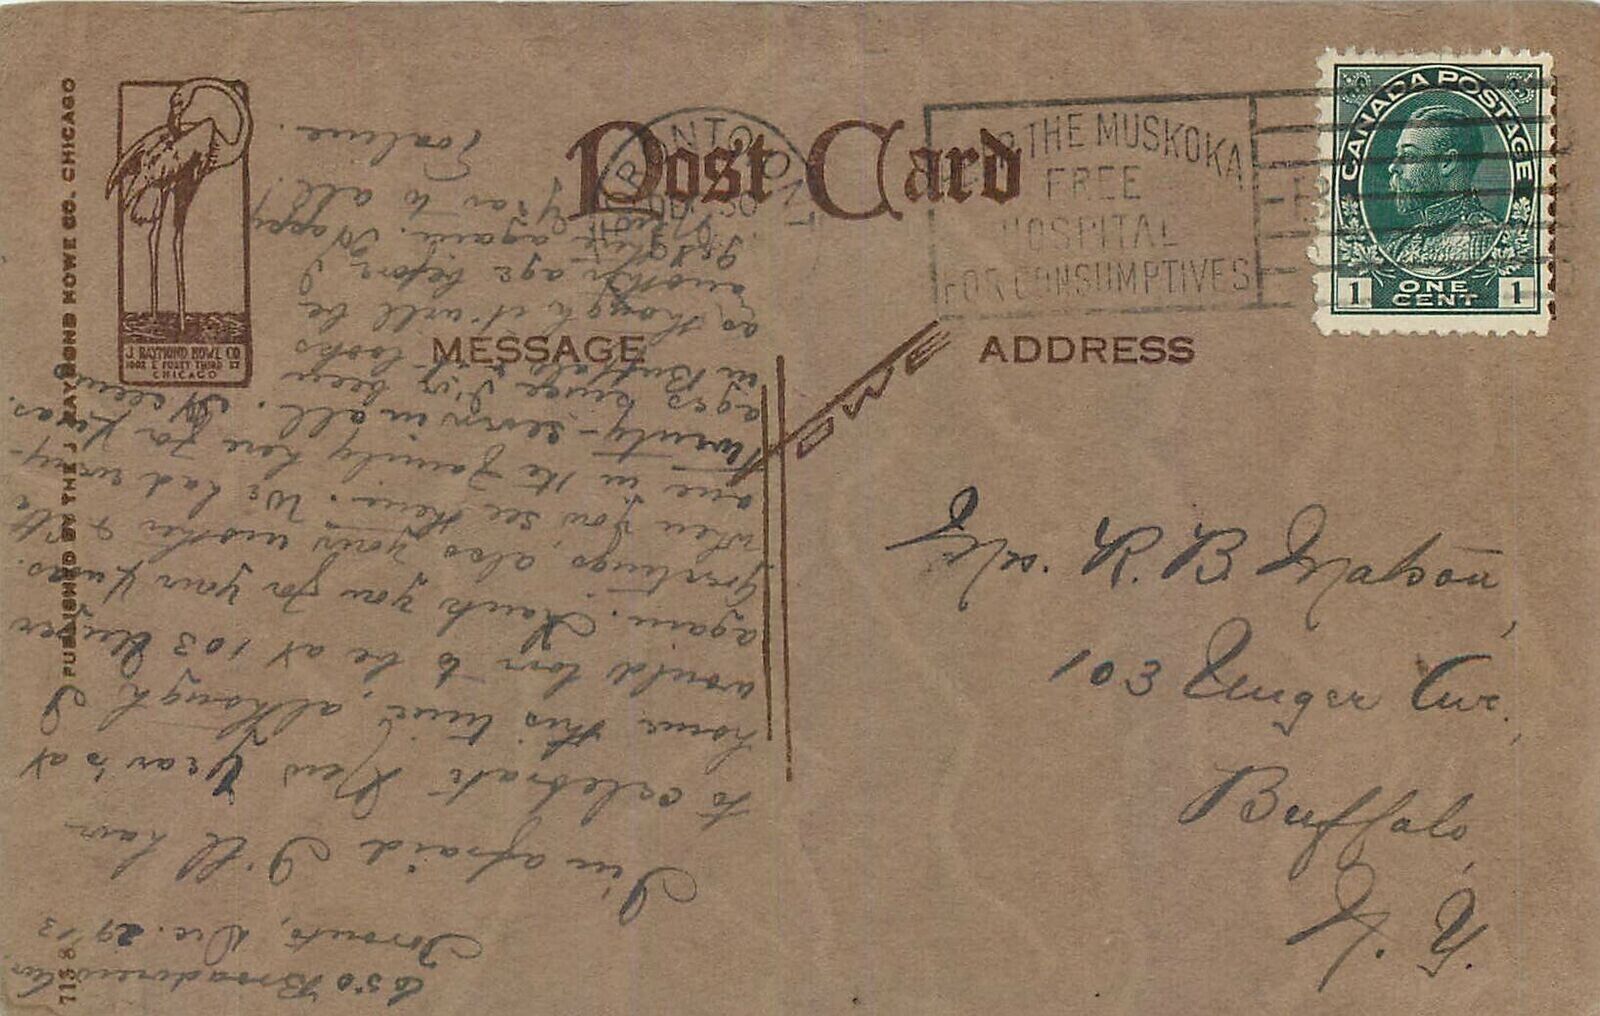 Post Card
MESSAGE
ADDRESS
HOWE
PUBLISHED BY THE J. RAYMOND HOWE CO. CHICAGO
J. RAYMOND HOWE CO
1002 E FORTY THIRD ST
CHICAGO
7138
TORONTO ONT
DEC 30
THE MUSKOKA
FREE
HOSPITAL
FOR CONSUMPTIVES
CANADA POSTAGE
1 ONE CENT 1
Mrs. R. B. Matson,
103 Unger Ave.,
Buffalo,
N. Y.
650 Broadview Ave
Toronto, Dec. 29/13
I'm afraid I'll have
to celebrate New Year's at
home this time, although I
would love to be at 103 Unger
again. Thank you for your Xmas
greetings, also your mother & Etta
when you see them. We had every-
one in the family here for Xmas.
Twenty-seven in all. It seems
ages since I've been
in Buffalo & looks
as though it will be
another age before I
get there again. Happy
New Year to all!
Pauline.